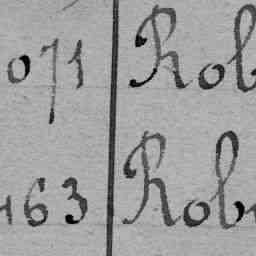 071 Rob
163 Rob